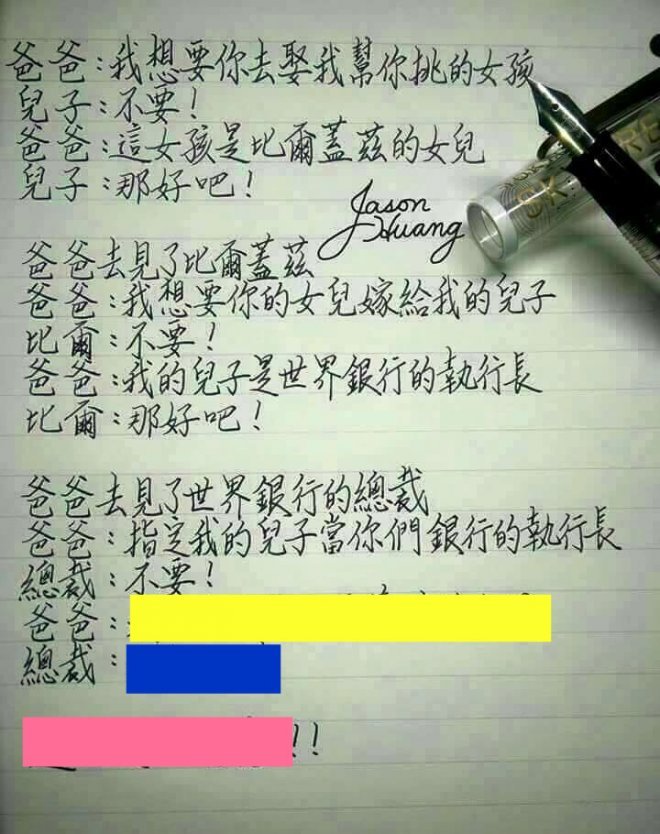 爸爸:我想要你去娶我幫你挑的女孩
兒子:不要!
爸爸:這女孩是比爾蓋茲的女兒
兒子:那好吧!
Jason
Huang
爸爸去見了比爾蓋茲
爸爸:我想要你的女兒嫁給我的兒子
比爾:不要!
爸爸:我的兒子是世界銀行的執行長
比爾:那好吧!
爸爸去見了世界銀行的總裁
爸爸:指定我的兒子當你們銀行的執行長
總裁:不要!
爸爸:
總裁:
!!